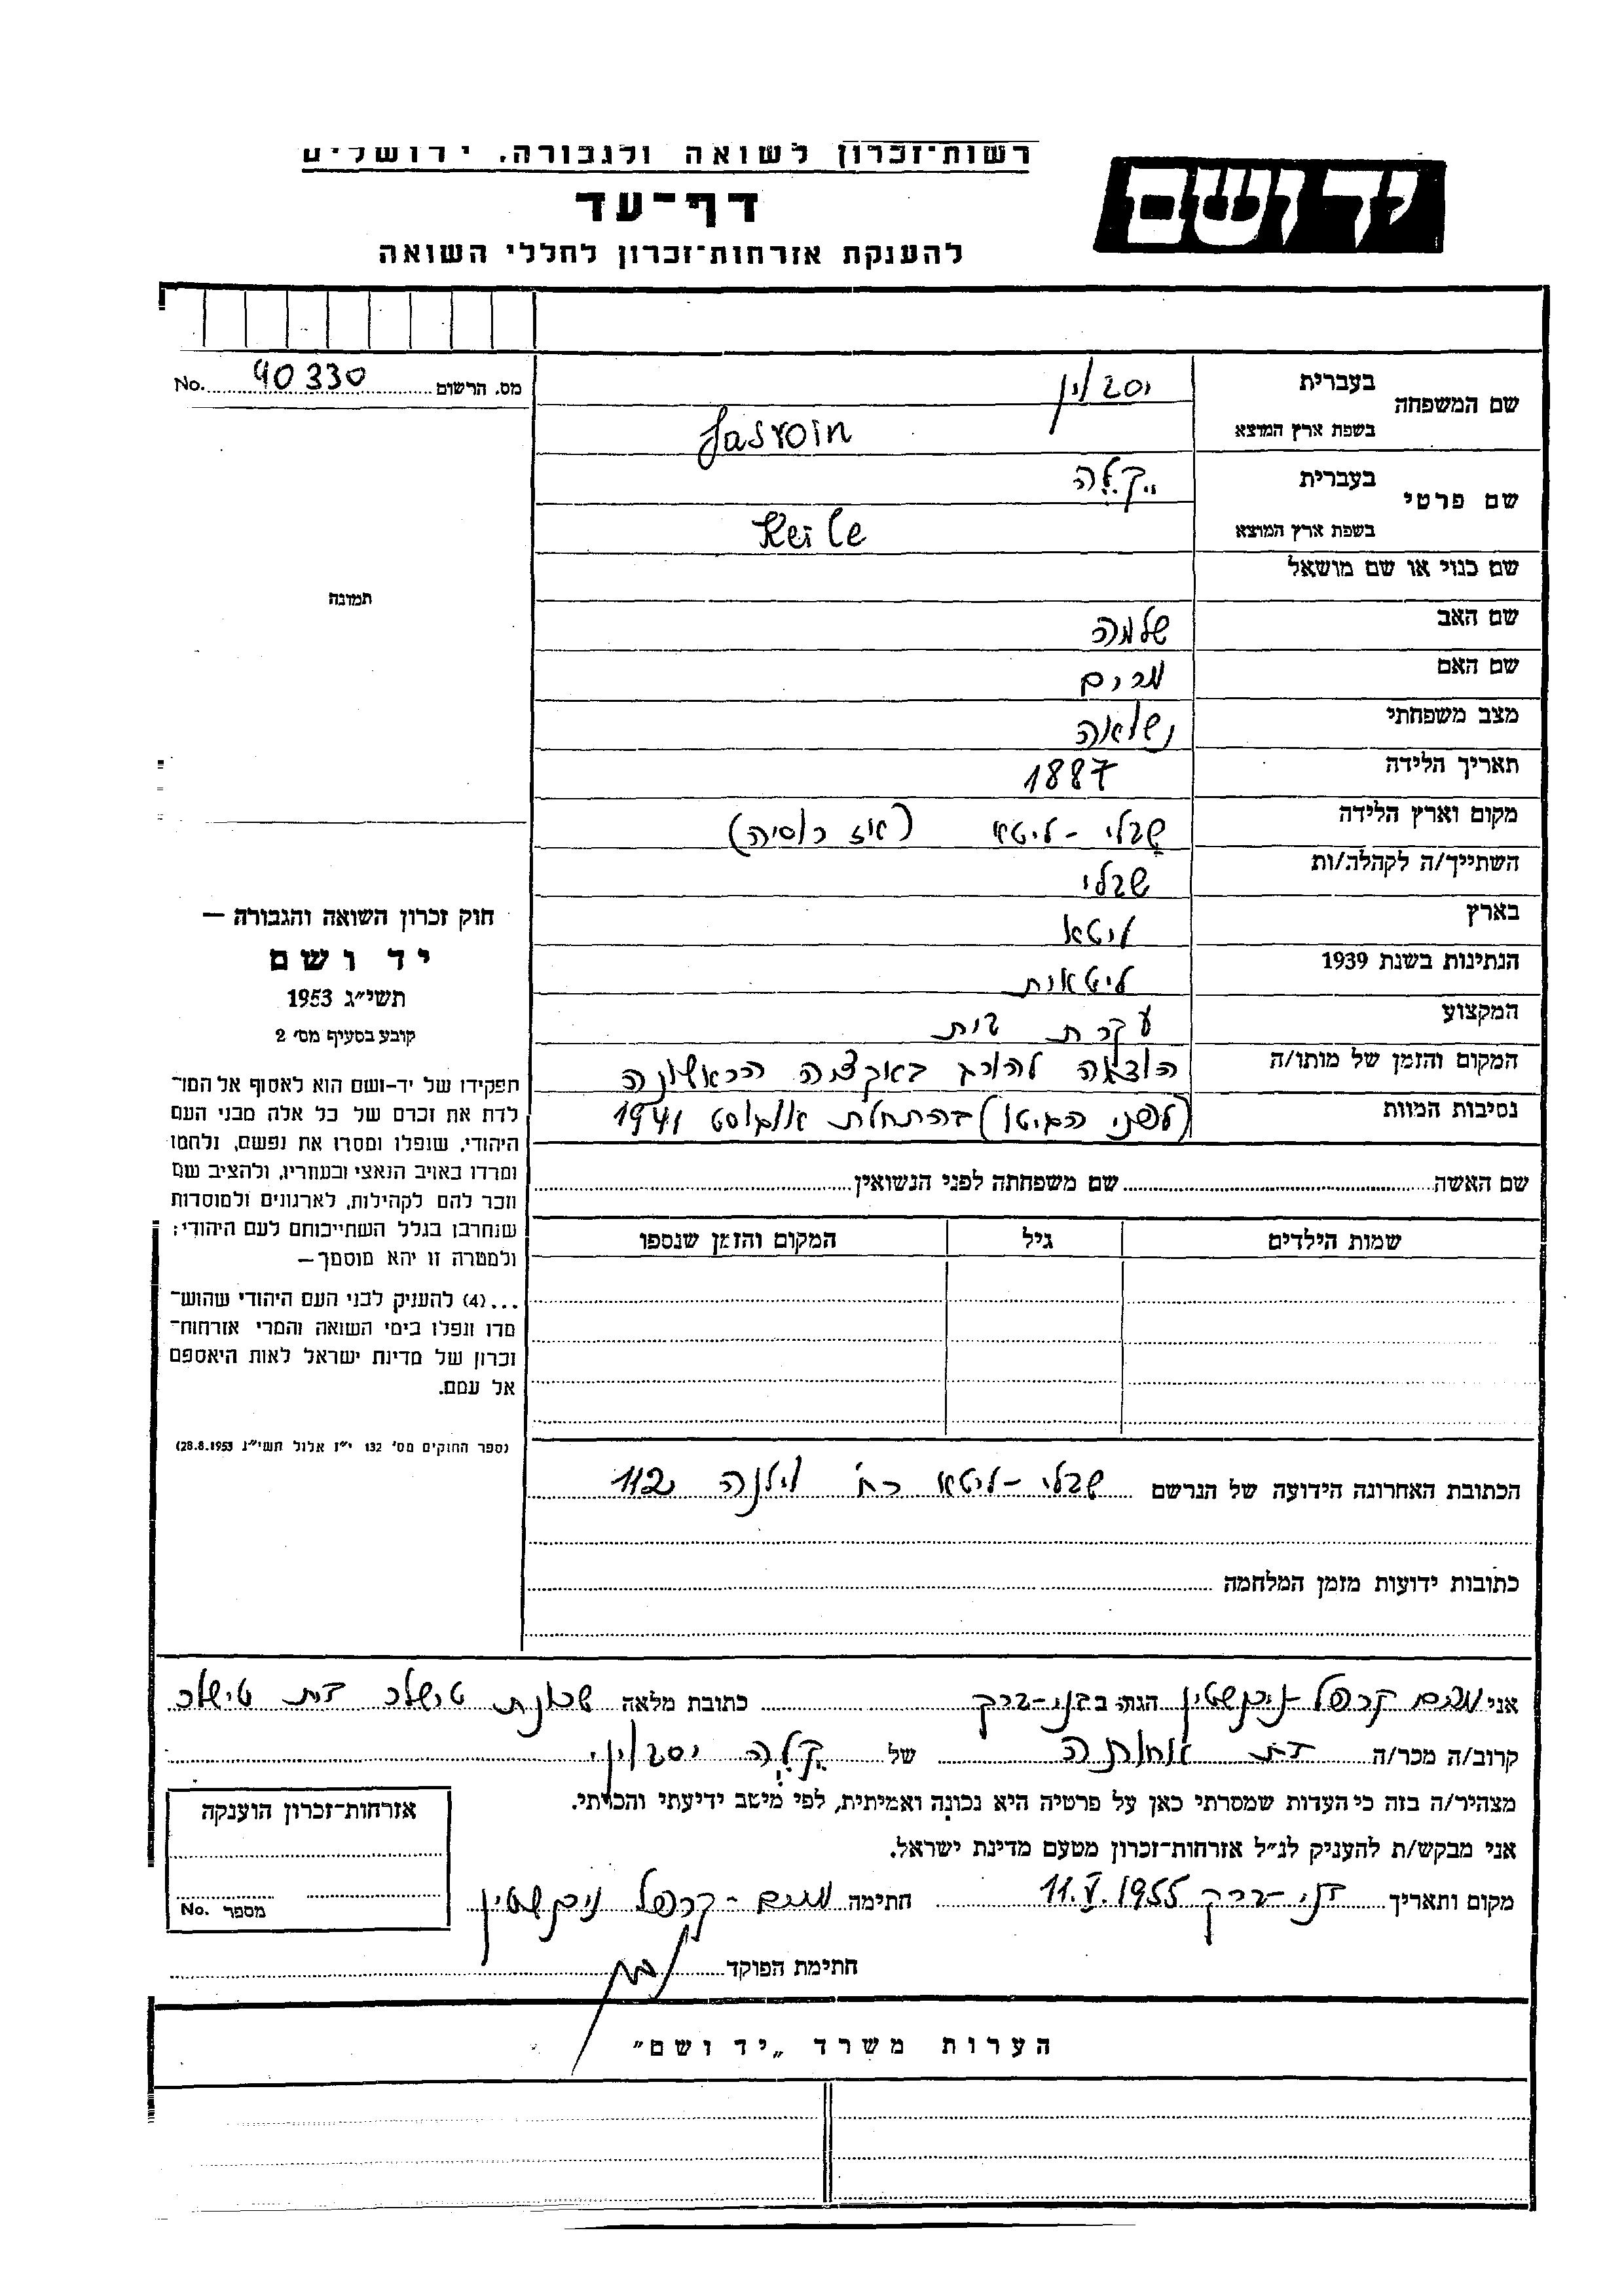 יד ושם
רשות־זכרון לשואה ולגבורה, ירושלים
דף־עד
להענקת אזרחות־זכרון לחללי השואה
מס. הרשום 40330 No.
תמונה
חוק זכרון השואה והגבורה —
יד ושם
תשי״ג 1953
קובע בסעיף מס׳ 2
תפקידו של יד־ושם הוא לאסוף אל המו־
לדת את זכרם של כל אלה מבני העם
היהודי, שנפלו ומסרו את נפשם, נלחמו
ומרדו באויב הנאצי ובעוזריו, ולהציב שם
וזכר להם לקהילות, לארגונים ולמוסדות
שנחרבו בגלל השתייכותם לעם היהודי;
ולמטרה זו יהא מוסמך —
...(4) להעניק לבני העם היהודי שהוש־
מדו ונפלו בימי השואה והמרי אזרחות־
זכרון של מדינת ישראל לאות היאספם
אל עמם.
(ספר החוקים מס׳ 132 י״ז אלול תשי״ג 28.8.1953)
שם המשפחה
בעברית יסבוין
בשפת ארץ המוצא Jasvoin
שם פרטי
בעברית קילה
בשפת ארץ המוצא Keile
שם כנוי או שם מושאל
שם האב שלמה
שם האם מרים
מצב משפחתי נשואה
תאריך הלידה 1887
מקום וארץ הלידה שבלי - ליטא (אז רוסיה)
השתייך/ה לקהלה/ות שבלי
בארץ ליטא
הנתינות בשנת 1939 ליטאית
המקצוע עקרת בית
המקום והזמן של מותו/ה הוצאה להורג באקציה הראשונה
נסיבות המוות (לפני הגיטו) בהתחלת אוגוסט 1941
שם האשה שם משפחתה לפני הנשואין
שמות הילדים גיל המקום והזמן שנספו
הכתובת האחרונה הידועה של הנרשם שבלי - ליטא רח׳ וילנה 112
כתובות ידועות מזמן המלחמה
אני מרים קרפל - ניקשטין הגרה ב בני - ברק כתובת מלאה שכונת טישלר בית טישלר
קרוב/ה מכר/ה בת אחותה של קילה יסבוין
מצהיר/ה בזה כי העדות שמסרתי כאן על פרטיה היא נכונה ואמיתית, לפי מיטב ידיעתי והכרתי.
אני מבקש/ת להעניק לנ״ל אזרחות־זכרון מטעם מדינת ישראל.
מקום ותאריך בני - ברק 11.V.1955 חתימה מרים - קרפל ניקשטין
חתימת הפוקד
אזרחות־זכרון הוענקה
מספר No.
הערות משרד „יד ושם״